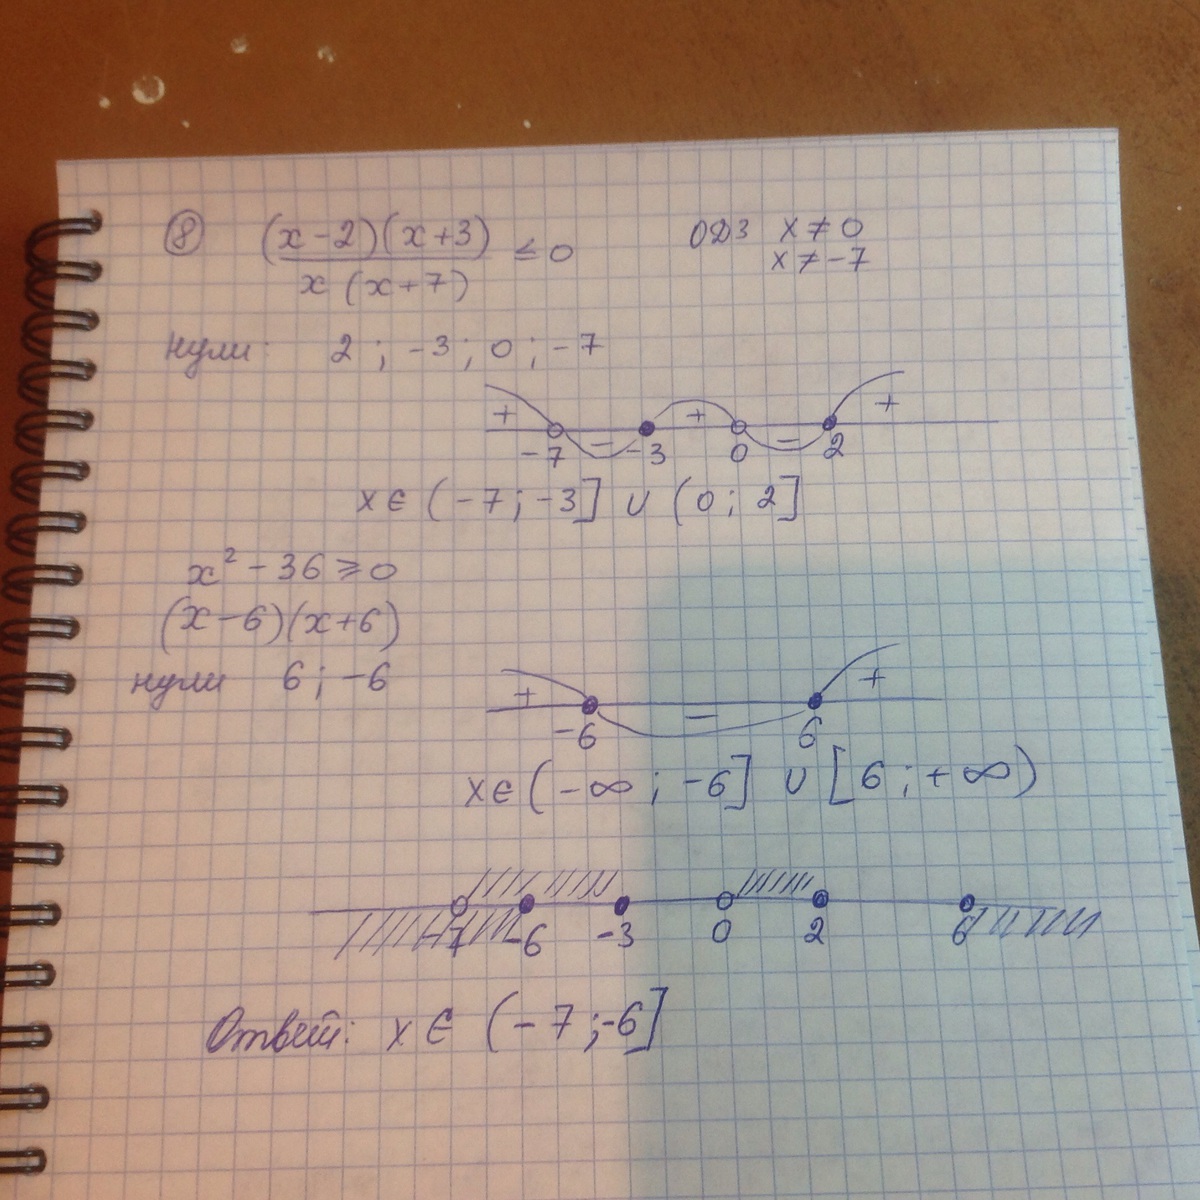 8 (x-2)(x+3) / x(x+7) ≤ 0 ОДЗ x ≠ 0
x ≠ -7
нули: 2 ; -3 ; 0 ; -7
+ - + - +
-7 -3 0 2
x ∈ (-7 ; -3] ∪ (0 ; 2]
x² - 36 ⩾ 0
(x-6)(x+6)
нули 6 ; -6
+ - +
-6 6
x ∈ (-∞ ; -6] ∪ [6 ; +∞)
-7 -6 -3 0 2 6
Ответ: x ∈ (-7 ; -6]